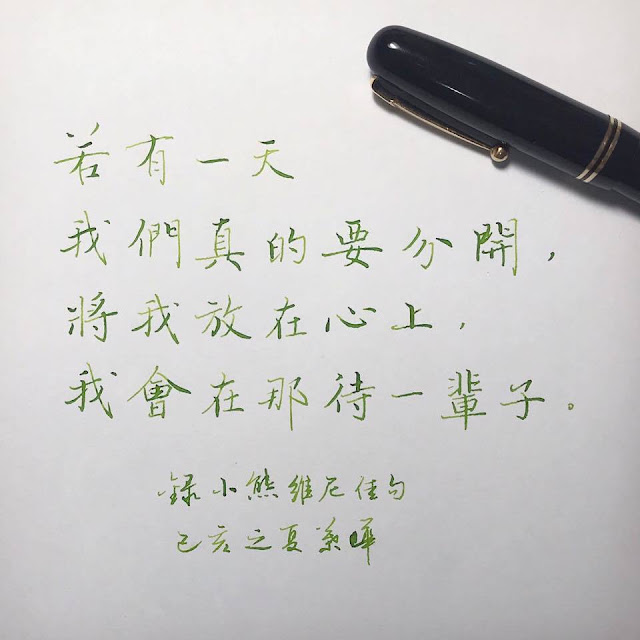 若有一天
我們真的要分開，
將我放在心上，
我會在那待一輩子。
錄小熊維尼佳句
己亥之夏